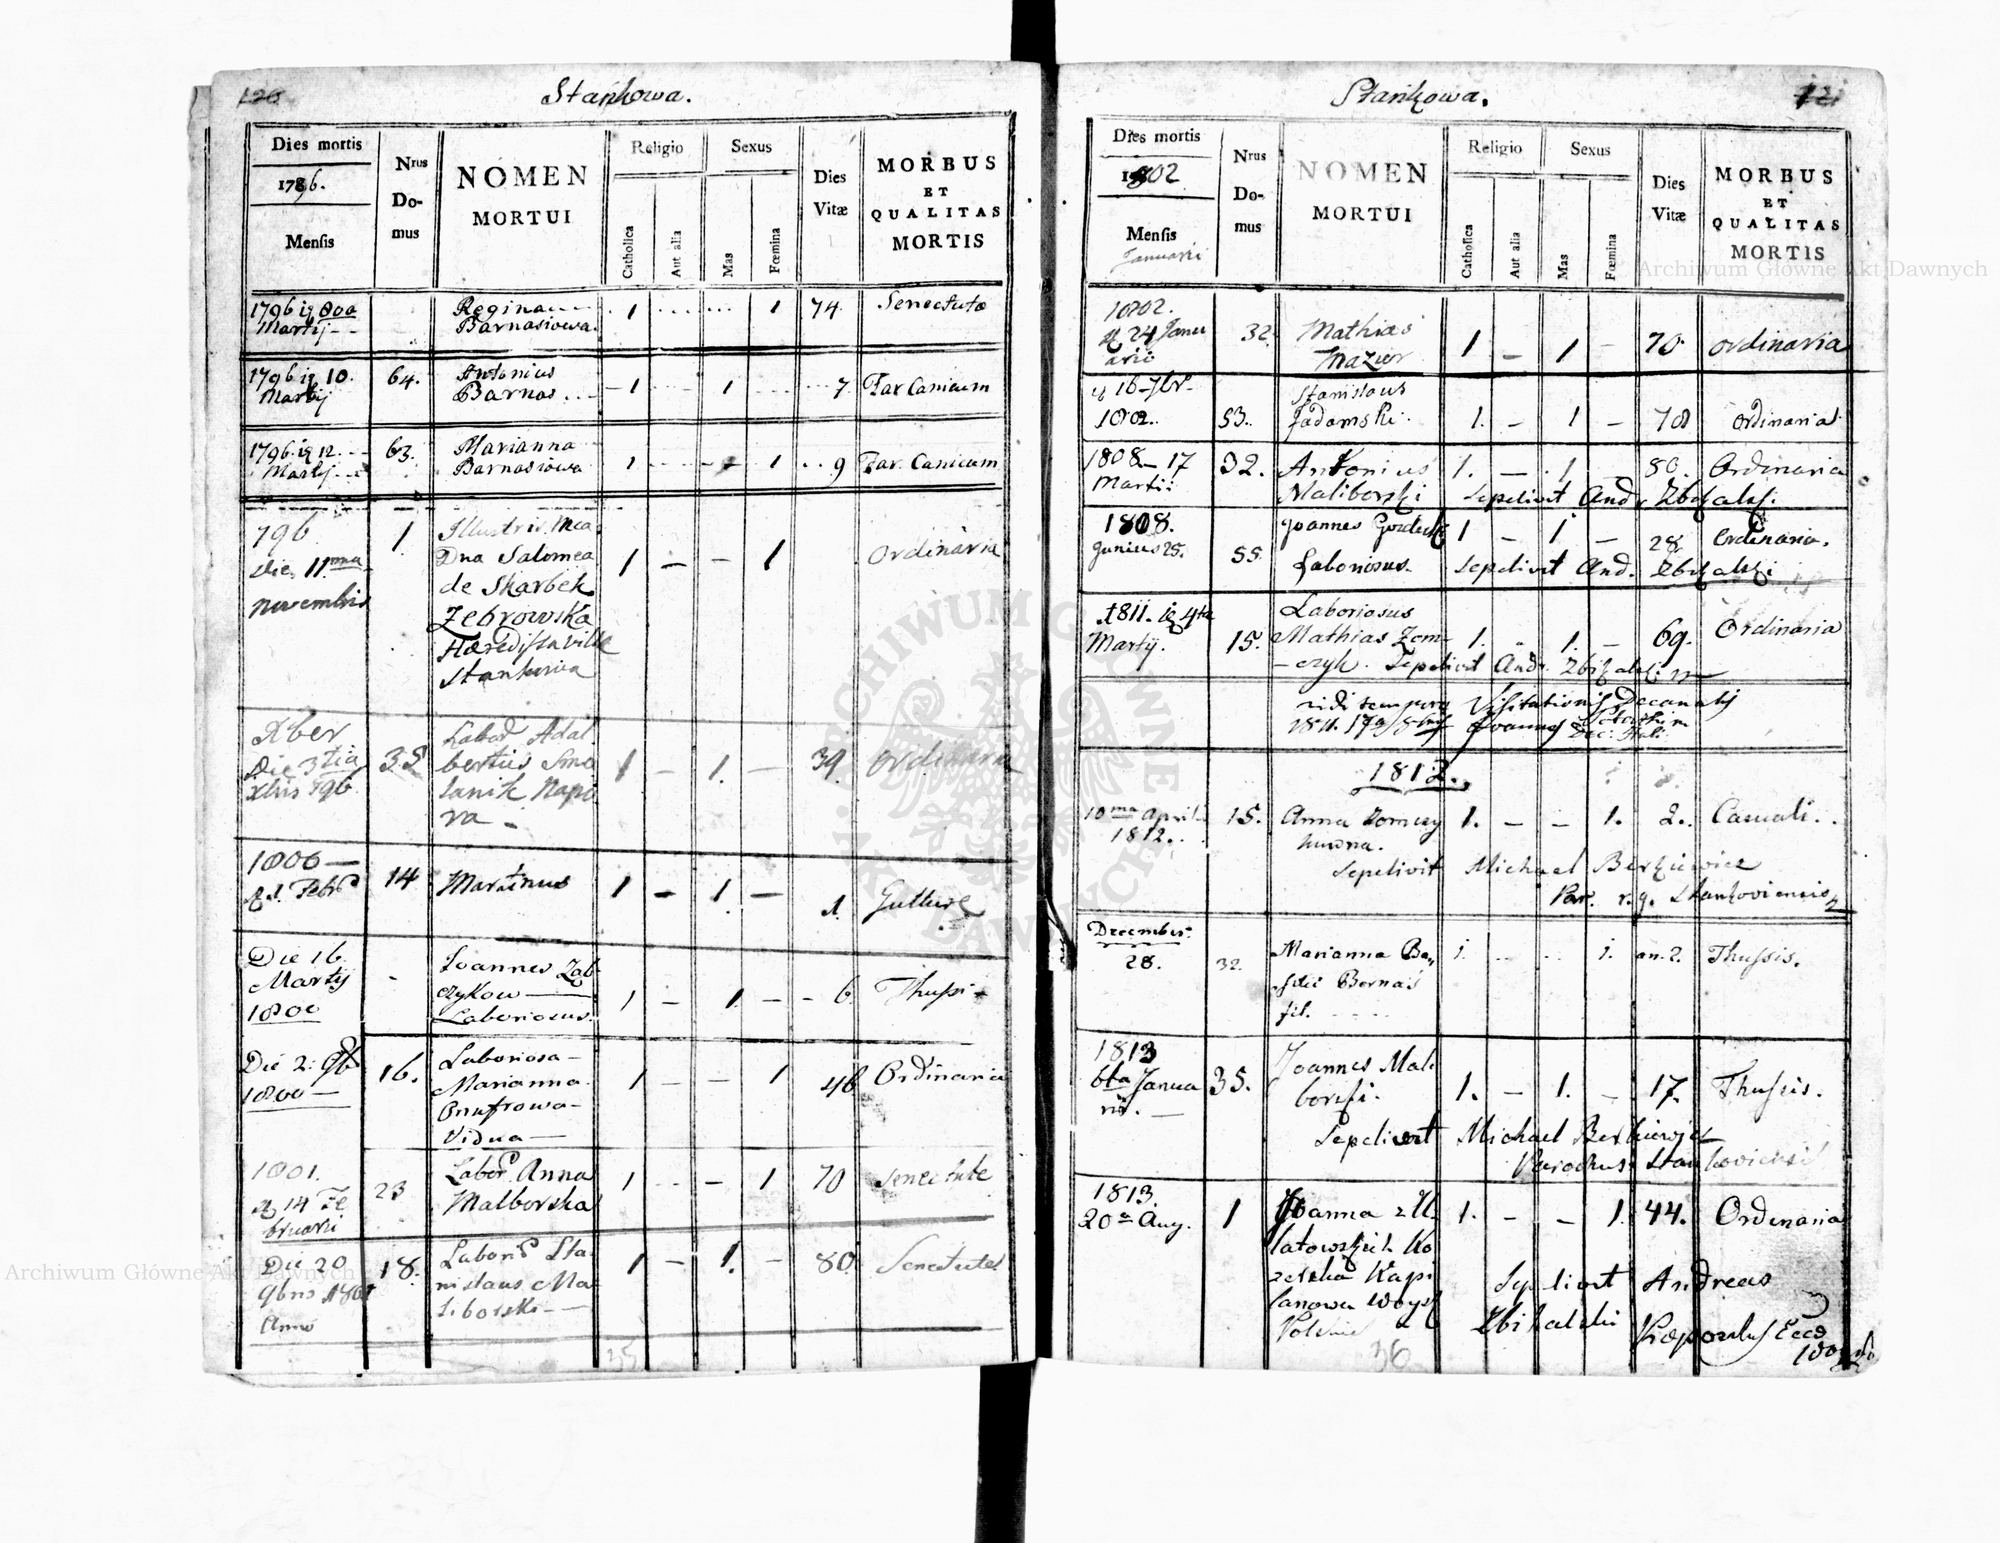 120
Stańkowa.
Dies mortis
1796.
Mensis
Nrus
Do-
mus
NOMEN
MORTUI
Religio
Catholica
Aut alia
Sexus
Mas
Fœmina
Dies
Vitæ
MORBUS
ET
QUALITAS
MORTIS
1796
Martij
Regina
Barnasiowa.
1 1 74. Senectute
1796 10.
Martij
64.
Antonius
Barnas
1 1 7 Far Canicum
1796. 12.
Martij
63.
Marianna
Barnasiowa
1 1 9 Far. Canicum
796
Die 11ma
Novembris
1.
Illustris. Mea
Dna Salomea
de Skarbek
Zebrowska
Hæredissa villæ
Stankowa
1 – – 1 Ordinaria
Xber
Die 3tia
Xbris 796
35
Labor Adal
bertus Sme
lanik Napi
ra –
1 – 1. – 39. Ordinaria
1800 –
14
Martinus
1 – 1. – 1. Gutture
Die 16
Martij
1800
Joannes Zab
czykow
Laboriosus.
1 – 1. – – 6. Thussi
Die 2: 9b
1800 –
16.
Laboriosa –
Marianna
Onufrowa –
Vidua –
1 – – 1 46 Ordinaria
1801.
14 Fe
bruarii
23
Labor. Anna
Malborska
1 – 1 70 Senectute
Die 20
9bris 1801
Anno
18.
Labori Sta
nislaus Ma
liborski –
1 – 1. – 80. Senectute
35
121
Stańkowa.
Dies mortis
1802
Mensis
Januarii
Nrus
Do-
mus
NOMEN
MORTUI
Religio
Catholica
Aut alia
Sexus
Mas
Fœmina
Dies
Vitæ
MORBUS
ET
QUALITAS
MORTIS
1802.
24 Janu
arii
32.
Mathias
Mazior
1 – 1 – 70. Ordinaria
16 7br
1802.
53.
Stanislaus
Jadamski.
1. – 1 – 70 Ordinaria
1808 – 17
Martii
32.
Antonius
Maliborski
1. – 1 – 80. Ordinaria
Sepelivit And. Zbikalski.
1808.
Junius 25.
55
Joannes
Laboriosus.
1 – 1 – 28. Ordinaria.
Sepelivit And. Zbikalski
1811. 4ta
Martij.
15.
Laboriosus
Mathias Zom-
– czyk.
1. 1. – 69. Ordinaria
Sepelivit And. Zbikalski
vidi tempore Visitationis Decanalis
1812.
10ma April
1812.
15.
Anna Zomczy
kowna.
1. – – 1. 2. Casuali.
Sepelivit Michael Berkiewicz
Par. r. g. Stankoviensis
December.
28.
32.
Marianna Ba
Bernas
fil.
1. 1. an. 2. Thussis.
1813
6ta Janua
rii. –
35.
Joannes Mal
borski.
1. – 1. – 17. Thussis.
Sepelivit Michael Berkiewicz
Parochus Stankoviensis
1813
20a Aug.
1
Joanna z Zl
latowskich Ko
zetska Kapi
tanowa Woysk
Polskich
1. – – 1. 44. Ordinaria
Sepelivit Andreas
Zbikalski
36
Archiwum Główne Akt Dawnych
Archiwum Główne Akt Dawnych
ARCHIWUM GŁÓWNE AKT DAWNYCH